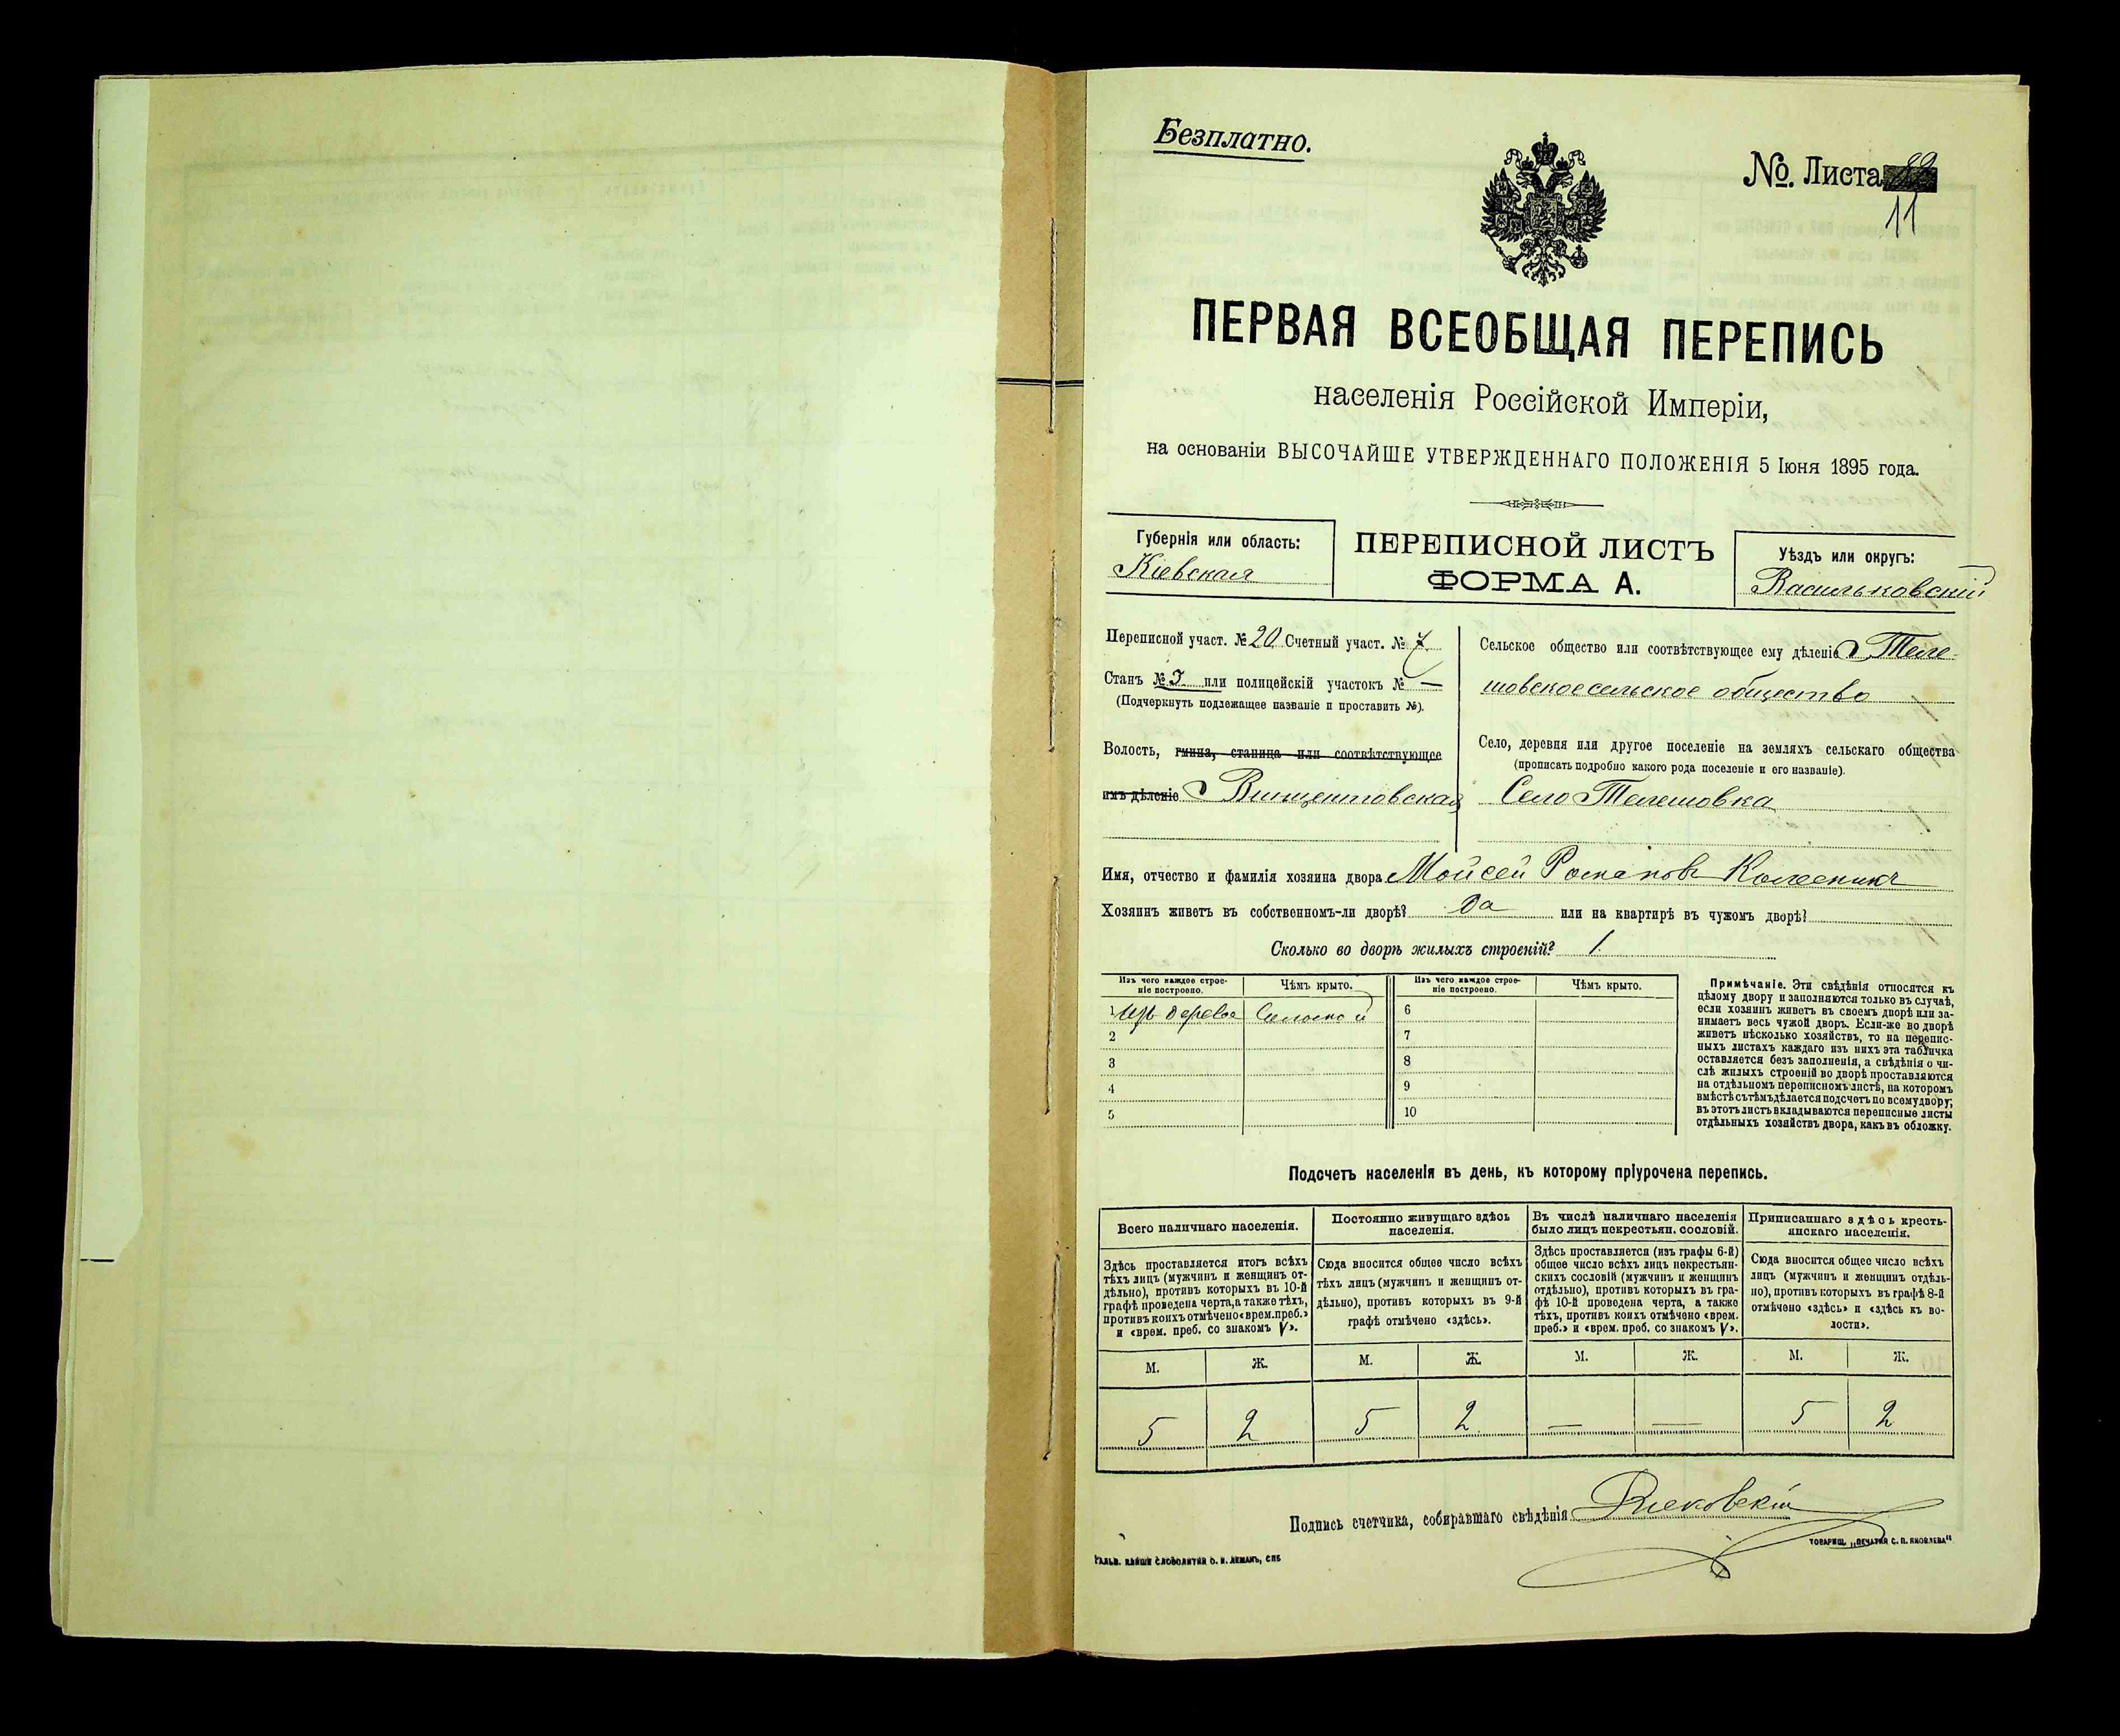 Безплатно.
№. Листа
11
ПЕРВАЯ ВСЕОБЩАЯ ПЕРЕПИСЬ
населенія Россійской Имперіи,
на основаніи ВЫСОЧАЙШЕ УТВЕРЖДЕННАГО ПОЛОЖЕНІЯ 5 Іюня 1895 года.
Губернія или область:
Кіевская
ПЕРЕПИСНОЙ ЛИСТЪ
ФОРМА А.
Уѣздъ или округъ:
Васильковскій
Переписной участ. № 20 Счетный участ. № 7
Станъ № I или полицейскій участокъ № —
(Подчеркнуть подлежащее названіе и проставить №).
Волость, гмина, станица или соотвѣтствующее
имъ дѣленіе Винцентовская
Сельское общество или соотвѣтствующее ему дѣленіе Теле-
шовское сельское общество
Село, деревня или другое поселеніе на земляхъ сельскаго общества
(прописать подробно какого рода поселеніе и его названіе).
Село Телешовка
Имя, отчество и фамилія хозяина двора Мойсей Романовъ Колесникъ
Хозяинъ живетъ въ собственномъ-ли дворѣ? Да или на квартирѣ въ чужомъ дворѣ?
Сколько во дворѣ жилыхъ строеній? 1.
Изъ чего каждое строе-
ніе построено.
Чѣмъ крыто.
Изъ чего каждое строе-
ніе построено.
Чѣмъ крыто.
1 Изъ дерева Соломой 6
2 7
3 8
4 9
5 10
Примѣчаніе. Эти свѣдѣнія относятся къ
цѣлому двору и заполняются только въ случаѣ,
если хозяинъ живетъ въ своемъ дворѣ или за-
нимаетъ весь чужой дворъ. Если-же во дворѣ
живетъ нѣсколько хозяйствъ, то на перепис-
ныхъ листахъ каждаго изъ нихъ эта табличка
оставляется безъ заполненія, а свѣдѣнія о чи-
слѣ жилыхъ строеній во дворѣ проставляются
на отдѣльномъ переписномъ листѣ, на которомъ
вмѣстѣ съ тѣмъ дѣлается подсчетъ по всему двору;
въ этотъ листъ вкладываются переписные листы
отдѣльныхъ хозяйствъ двора, какъ въ обложку.
Подсчетъ населенія въ день, къ которому пріурочена перепись.
Всего наличнаго населенія.
Здѣсь проставляется итогъ всѣхъ
тѣхъ лицъ (мужчинъ и женщинъ от-
дѣльно), противъ которыхъ въ 10-й
графѣ проведена черта, а также тѣхъ,
противъ коихъ отмѣчено «врем. преб.»
и «врем. преб. со знакомъ V».
Постоянно живущаго здѣсь
населенія.
Сюда вносится общее число всѣхъ
тѣхъ лицъ (мужчинъ и женщинъ от-
дѣльно), противъ которыхъ въ 9-й
графѣ отмѣчено «здѣсь».
Въ числѣ наличнаго населенія
было лицъ некрестьян. сословій.
Здѣсь проставляется (изъ графы 6-й)
общее число всѣхъ лицъ некрестьян-
скихъ сословій (мужчинъ и женщинъ
отдѣльно), противъ которыхъ въ гра-
фѣ 10-й проведена черта, а также
тѣхъ, противъ коихъ отмѣчено «врем.
преб.» и «врем. преб. со знакомъ V».
Приписаннаго здѣсь кресть-
янскаго населенія.
Сюда вносится общее число всѣхъ
лицъ (мужчинъ и женщинъ отдѣль-
но), противъ которыхъ въ графѣ 8-й
отмѣчено «здѣсь» и «здѣсь къ во-
лости».
М. Ж. М. Ж. М. Ж. М. Ж.
5 2 5 2 — — 5 2
Подпись счетчика, собиравшаго свѣдѣнія
ТОВАРИЩ. „ПЕЧАТНЯ С. П. ЯКОВЛЕВА"